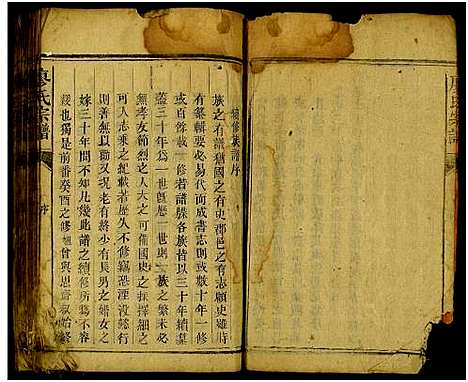 續修族譜序
族之有譜猶國之有史郡邑之有志顧史雖時
有纂輯要必易代而成書志則或數十年一修
或百餘載一修若譜牒各族皆以三十年續纂
蓋三十年為一世既歷一世則一族之繁未必
無孝女節烈之人大之可備國史之採擇細之
可入志乘之紀載若歷久不修竊恐湮沒勝行
與無徵又況老者終少者長男之婚女之
嫁三十年間不知凡幾此譜之續修所為不容
緩也獨是前番癸酉之修 曾與思齋叔始終
廖氏宗譜
序
廖氏宗譜